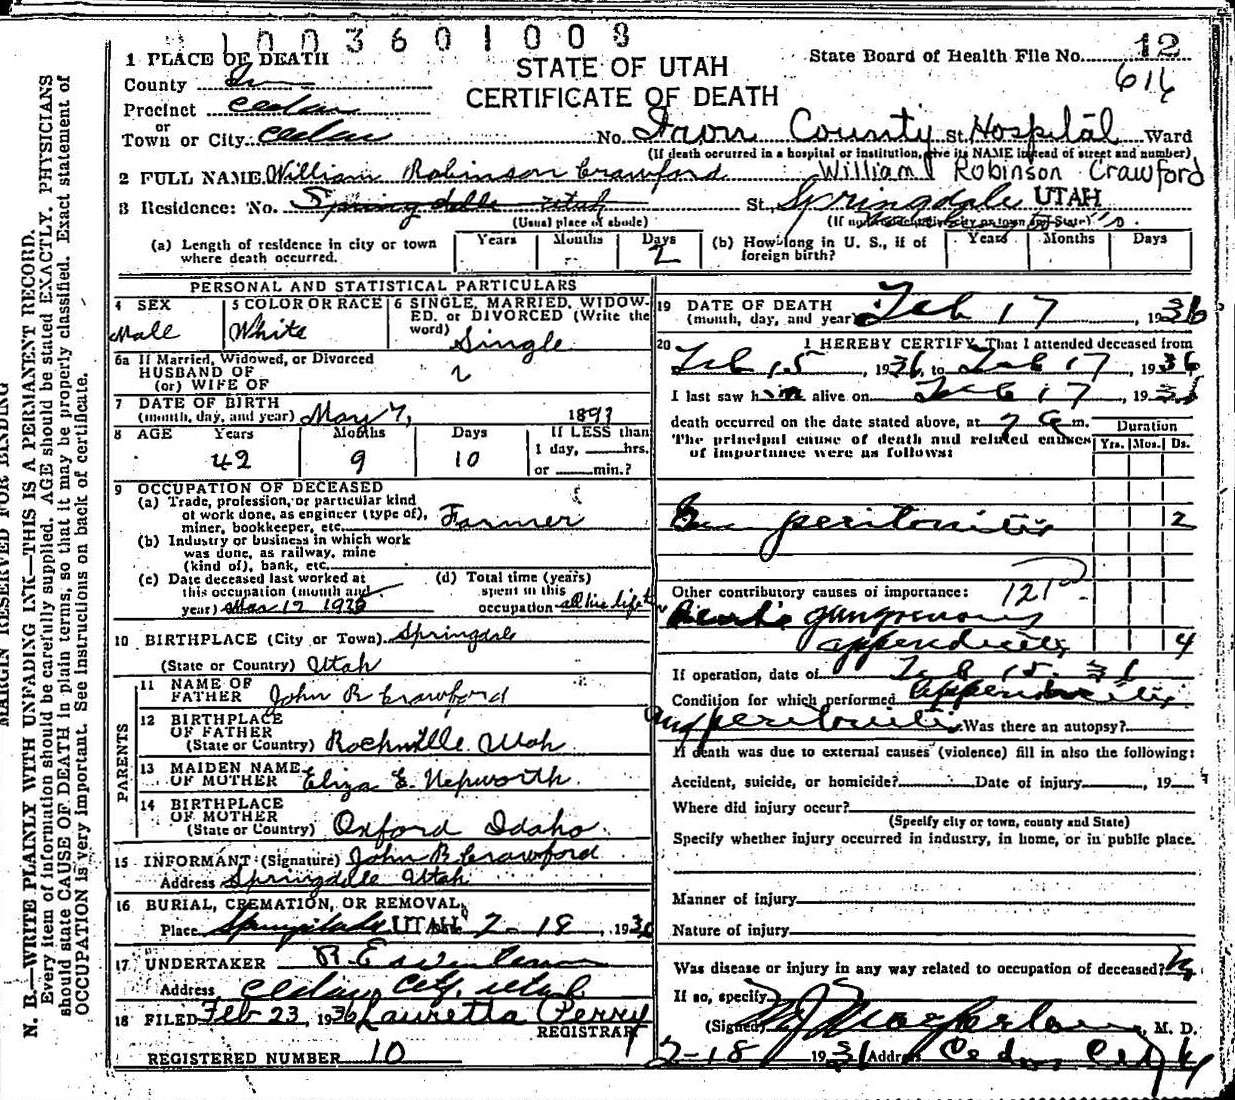 1003601008
1 PLACE OF DEATH
STATE OF UTAH
State Board of Health File No. 12
County
CERTIFICATE OF DEATH
616
Precinct Cedar
Town or City Cedar No. Iron County St. Hospital Ward
(If death occurred in a hospital or institution, give its NAME instead of street and number)
2 FULL NAME William Robinson Crawford William Robinson Crawford
3 Residence: No. Springdale Utah St. Springdale UTAH
(Usual place of abode)
(a) Length of residence in city or town where death occurred. Years Months Days 2
(b) How long in U. S., if of foreign birth? Years Months Days
PERSONAL AND STATISTICAL PARTICULARS
4 SEX Male
5 COLOR OR RACE White
6 SINGLE, MARRIED, WIDOWED. or DIVORCED (Write the word) Single
6a If Married, Widowed, or Divorced
HUSBAND OF
(or) WIFE OF
7 DATE OF BIRTH
(month, day, and year) May 7, 1893
8 AGE Years Months Days If LESS than
42 9 10 1 day, hrs.
or min.?
9 OCCUPATION OF DECEASED
(a) Trade, profession, or particular kind
of work done, as engineer (type of),
miner, bookkeeper, etc. Farmer
(b) Industry or business in which work
was done, as railway, mine
(kind of), bank, etc.
(c) Date deceased last worked at
this occupation (month and
year)
(d) Total time (years)
spent in this
occupation all his life
10 BIRTHPLACE (City or Town) Springdale
(State or Country) Utah
PARENTS
11 NAME OF
FATHER John R Crawford
12 BIRTHPLACE
OF FATHER
(State or Country) Rockville Utah
13 MAIDEN NAME
OF MOTHER Eliza E. Hepworth
14 BIRTHPLACE
OF MOTHER
(State or Country) Oxford Idaho
15 INFORMANT (Signature) John R Crawford
Address Springdale Utah
16 BURIAL, CREMATION, OR REMOVAL,
Place Springdale UTAH 2-18, 1936
17 UNDERTAKER
Address Cedar City, Utah
18 FILED Feb 23, 1936 Lauretta Perry
REGISTRAR
REGISTERED NUMBER 10
19 DATE OF DEATH
(month, day, and year) Feb 17, 1936
20 I HEREBY CERTIFY, That I attended deceased from
Feb 15, 1936, to Feb 17, 1936
I last saw him alive on Feb 17, 1936
death occurred on the date stated above, at 7 a m.
The principal cause of death and related causes
of importance were as follows:
Duration
Yrs. Mos. Ds.
peritonitis 2
Other contributory causes of importance: 121
gangrenous
appendicitis 4
If operation, date of Feb 15. 36
Condition for which performed appendicitis
and peritonitis Was there an autopsy?
If death was due to external causes (violence) fill in also the following:
Accident, suicide, or homicide? Date of injury, 19
Where did injury occur?
(Specify city or town, county and State)
Specify whether injury occurred in industry, in home, or in public place.
Manner of injury
Nature of injury
Was disease or injury in any way related to occupation of deceased?
If so, specify
(Signed) M. D.
2-18 1936 Address Cedar City
MARGIN RESERVED FOR BINDING
N. B.—WRITE PLAINLY WITH UNFADING INK—THIS IS A PERMANENT RECORD.
Every item of information should be carefully supplied. AGE should be stated EXACTLY. PHYSICIANS
should state CAUSE OF DEATH in plain terms, so that it may be properly classified. Exact statement of
OCCUPATION is very important. See instructions on back of certificate.